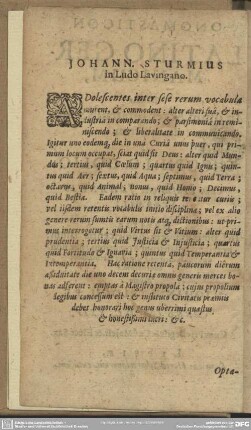 JOHANN. STURMIUS
In Ludo Lavingano.
ADolescentes inter sese rerum vocabula
curent, & commodent: alter alteri suâ, & in-
dustriâ in comparando; & parsimoniâ in remi-
niscendo; & liberalitate in communicando.
Igitur uno eodemq, die in una Curiâ unus puer, qui pri-
mum locum occupat, sciat quid sit Deus: alter quid Mun-
dus; tertius, quid Cœlum; quartus quid Ignis; quin-
tus quid Aer; sextus, quid Aqua; septimus, quid Terra;
octavus, quid Animal; nonus, quid Homo; Decimus,
quid Bestia. Eadem ratio in reliquis
vel iisdem retentis vocabulis initio disciplinæ; vel ex alio
genere rerum sumtis earum notis atq, dictionibus: ut pri-
mus interrogetur; quid Vertus sit & Vitium: alter quid
prudentia; tertius quid Justicia & Injusticia; quartus
quid Fortitudo & Ignavia; quintus quid Temperantia &
Intemperantia. Hac ratione retentâ, paucorum diērum
assiduitate die uno decem decuriæ omnis generis merces bo-
nas adferent: emptas à Magistro propola; cujus propolium
legibus concessum est: & institutus Civitatis præmiis
debet honorari hoc genus uberrimi quæstus,
& honestissimi lucri: &c.
Opta-